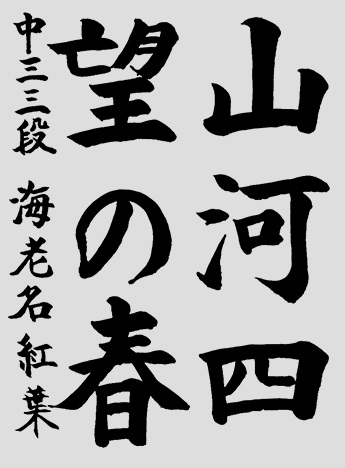 山河四
望の春
中三三段 海老名紅葉